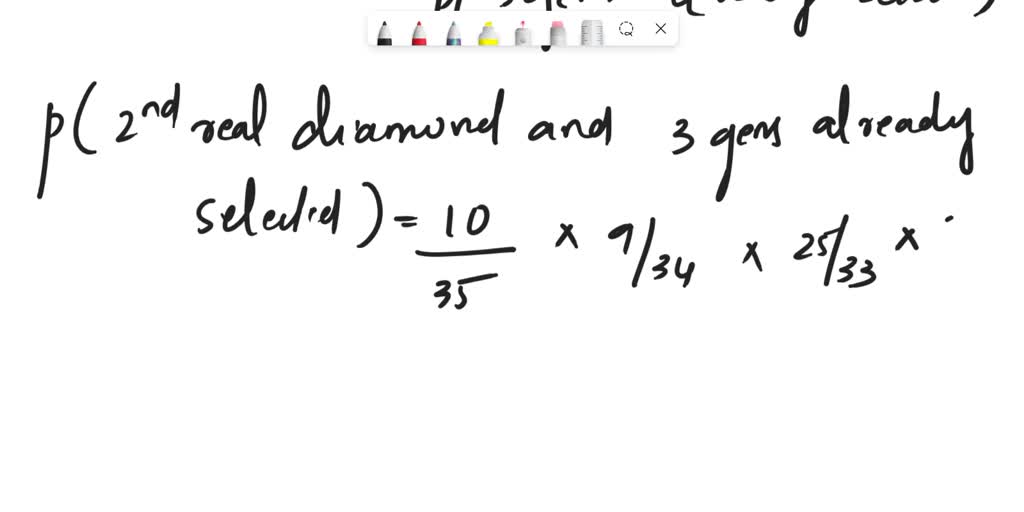 p( 2nd real diamond and 3 gems already
selected ) = 10/35 x 9/34 x 25/33 x